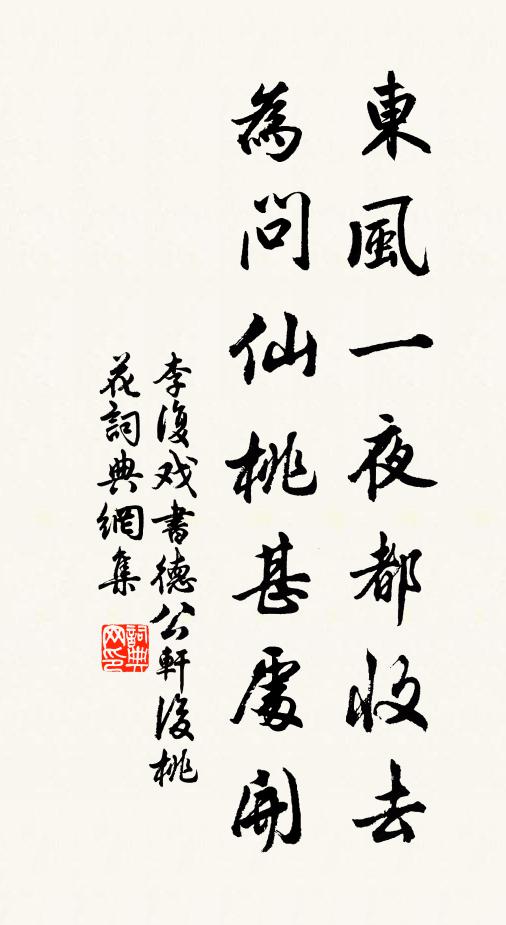 東風一夜都收去
為問仙桃甚處開
李復戏書德公軒後桃
花詞典網集
詞典
网印